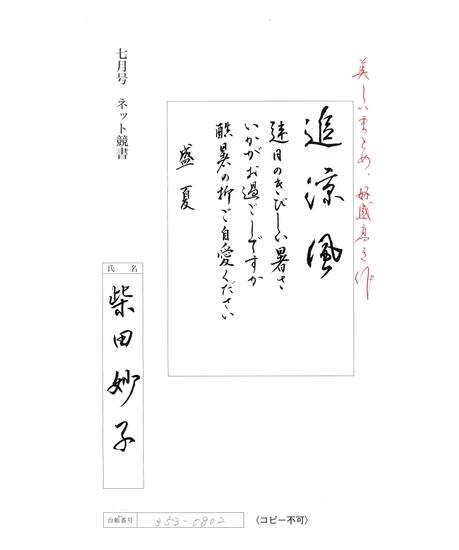 美しいまとめ、好感高き作
追涼風
連日のきびしい暑さ
いかがお過ごしですか
酷暑の折ご自愛ください
盛夏
七月号 ネット競書
氏名
柴田妙子
台帳番号 353-0802
〈コピー不可〉